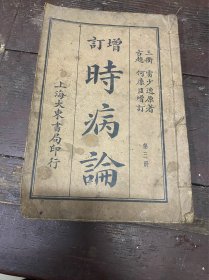 增訂
三衢 雷少逸原著
古越 何廉臣增訂
時病論
第三冊
上海大東書局印行